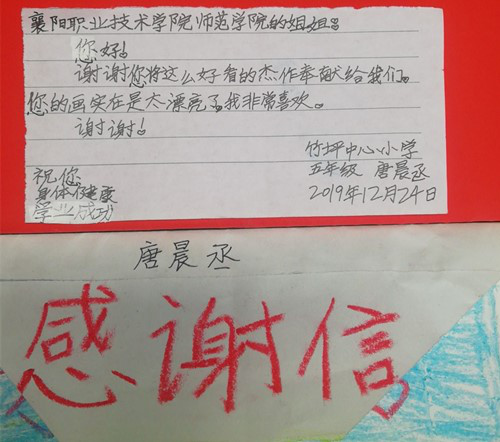 襄阳职业技术学院师范学院的姐姐：
您好！
谢谢你将这么好看的杰作奉献给我们。
您的画实在是太漂亮了，我非常喜欢。
谢谢！
竹坪中心小学
五年级 唐晨丞
2019年12月24日
祝您
身体健康
学业成功
唐晨丞
感谢信